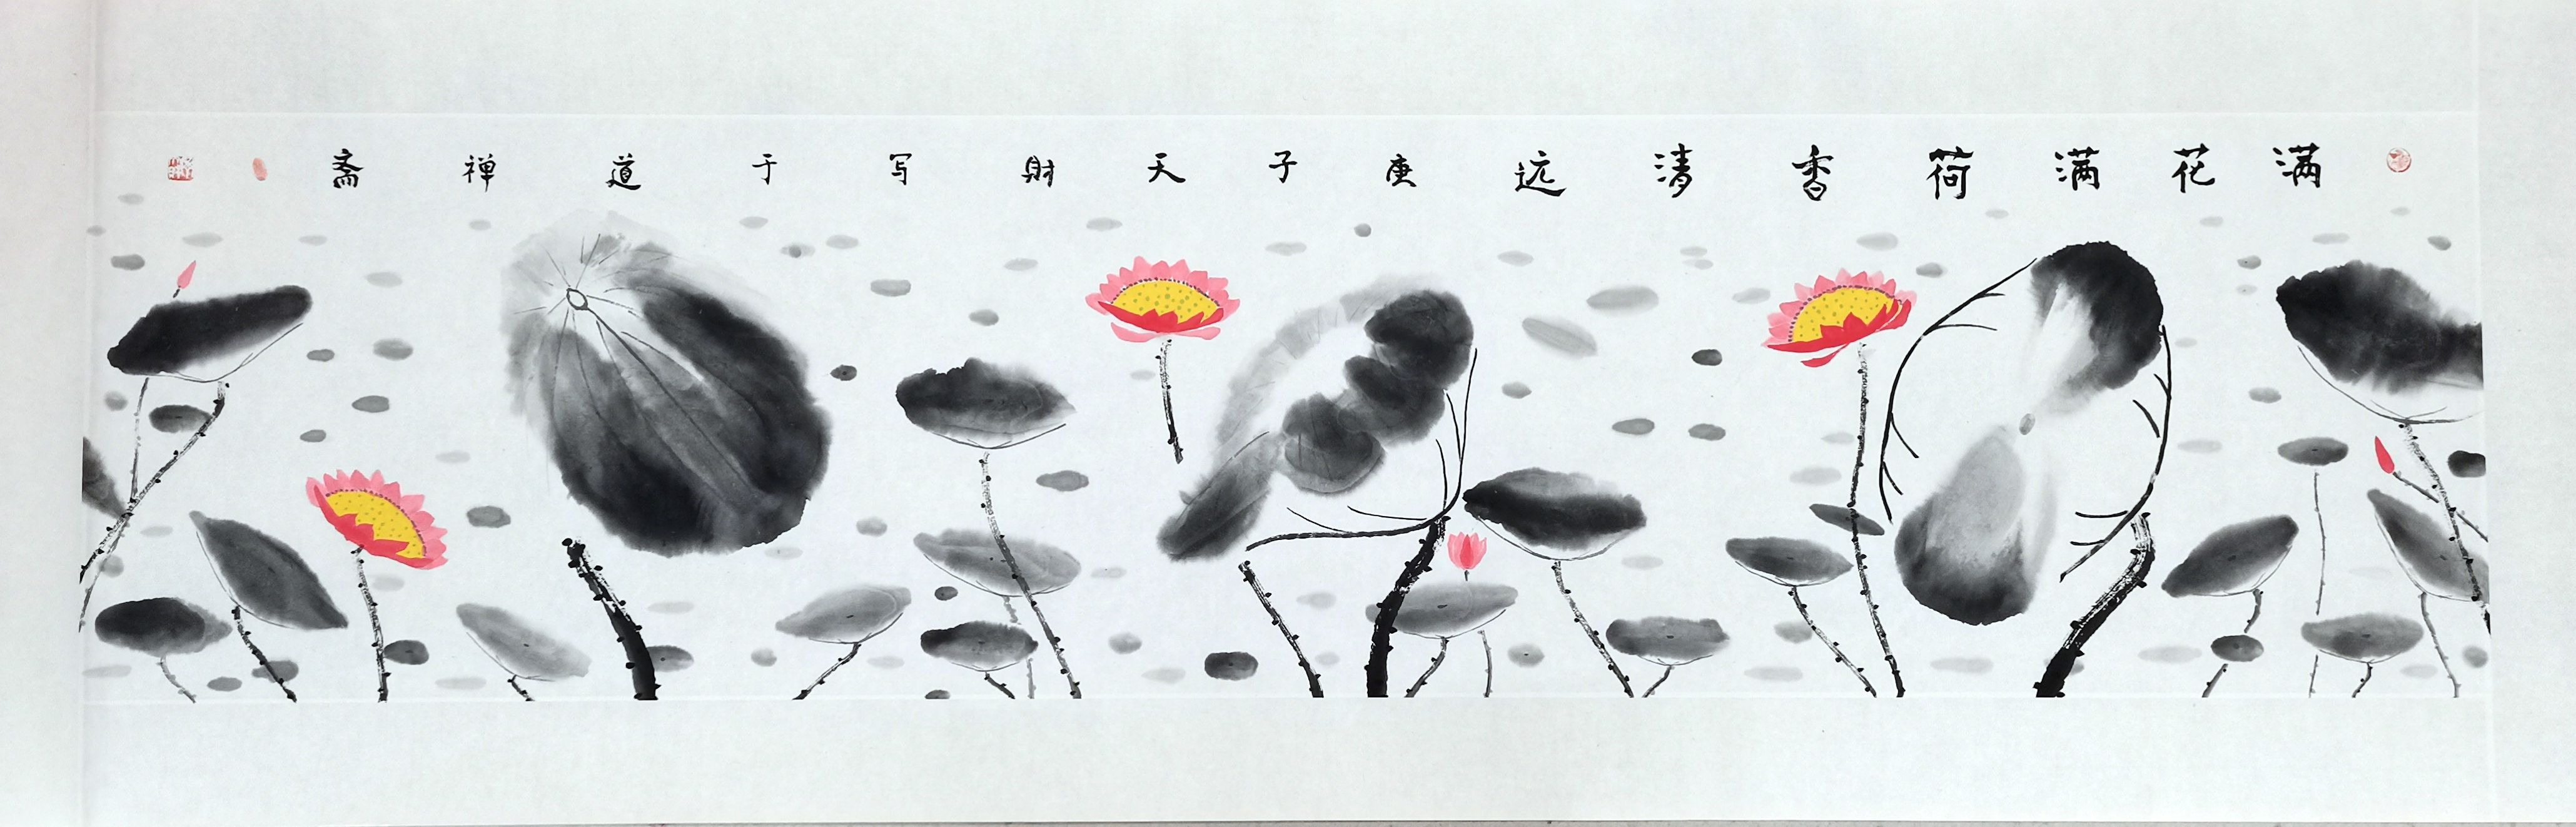 满花满荷香清远庚子天财写于道禅斋